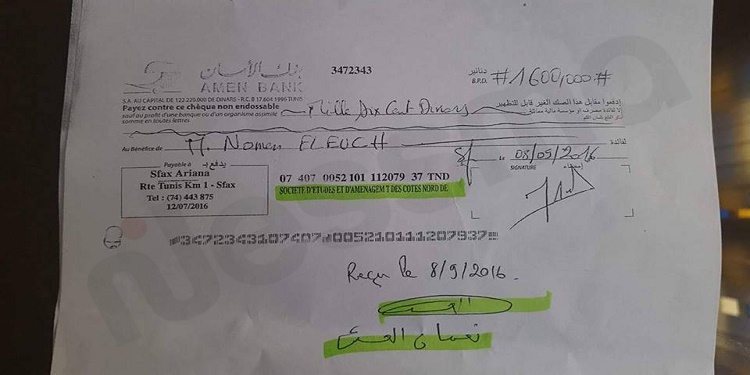 بنك الأمان
AMEN BANK
3472343
دنانير
B.P.D.
#1600,000#
S.A. AU CAPITAL DE 122.220.000 DE DINARS - R.C. B 17 604 1996 TUNIS
Payez contre ce chèque non endossable
sauf au profit d'une banque ou d'un organisme assimilé
comme en toutes lettres
Mille Six Cent Dinars
إدفعوا مقابل هذا الصك الغير قابل للتظهير
Au Bénéfice de
M. Nomen FLEUCH
لفائدة
Payable à
يدفع بـ
Sfax Ariana
Rte Tunis Km 1 - Sfax
Tel : (74) 443 875
12/07/2016
07 407 0052 101 112079 37 TND
SOCIETE D'ETUDES ET D'AMENAGEM T DES COTES NORD DE
Sf
08/09/2016
SIGNATURE
إمضاء
3472343107407 005210111207937
Reçu le 8/9/2016.
الفلوش
نعمان الفلوش